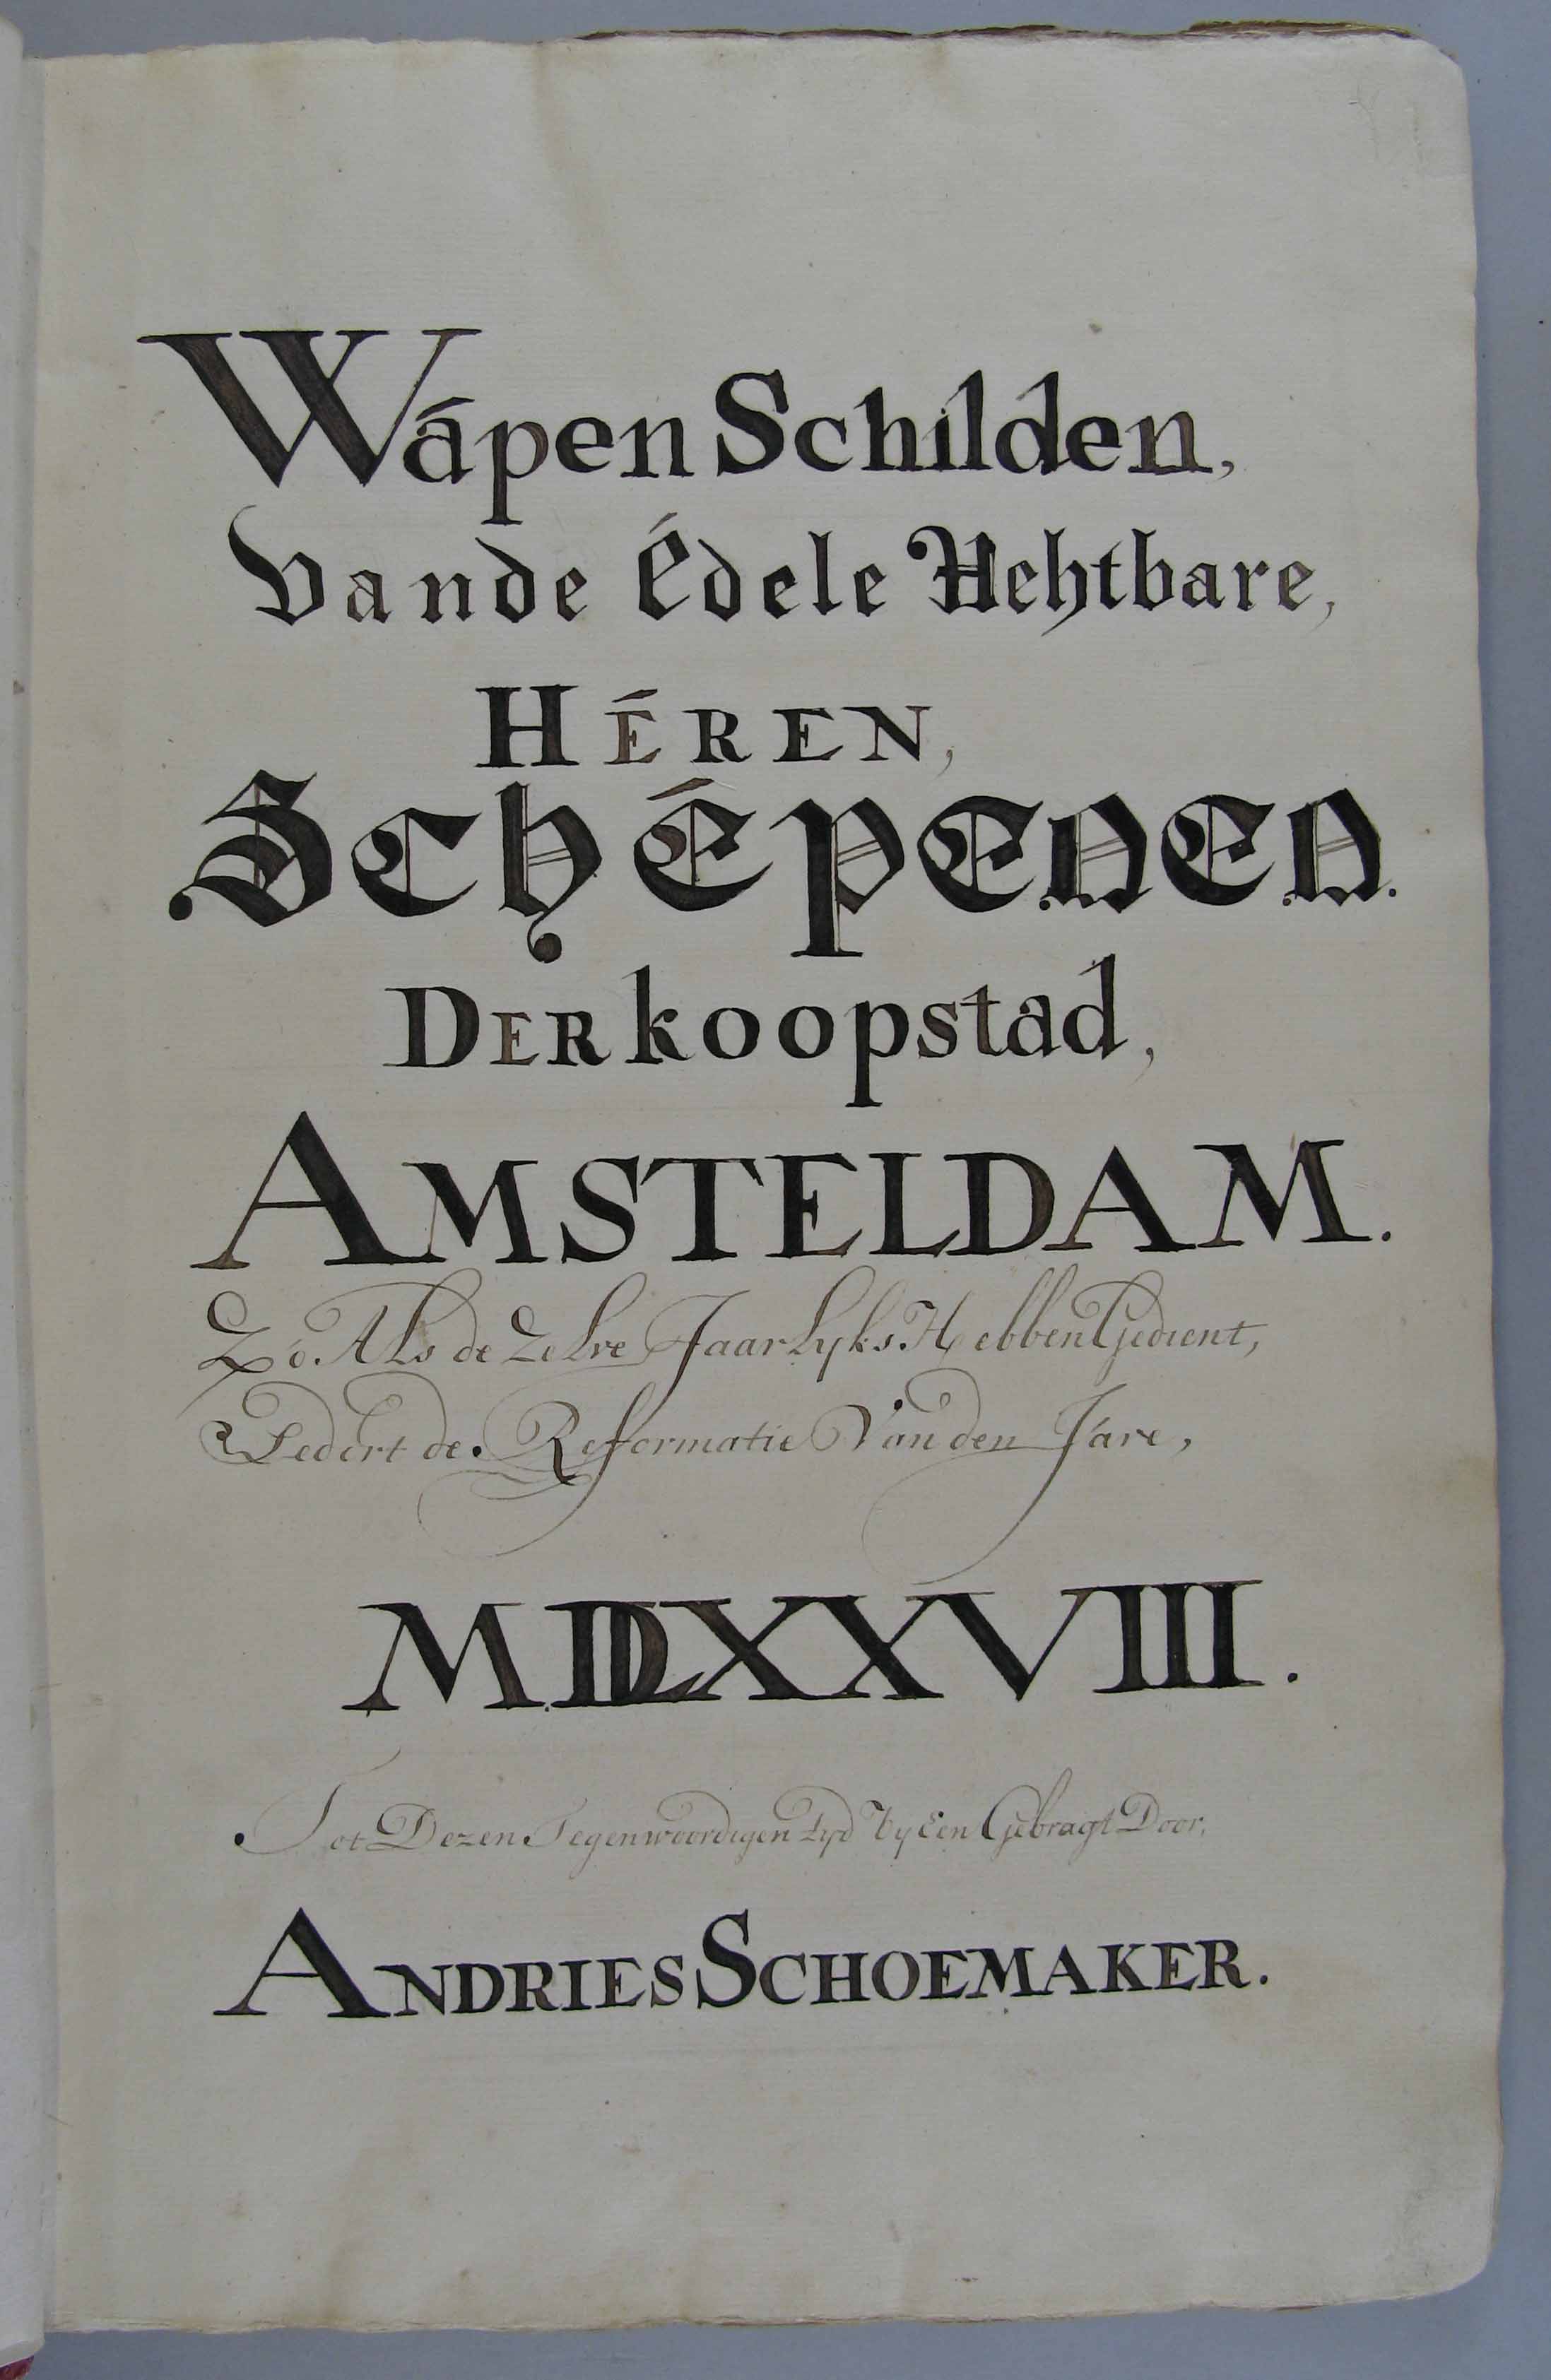 Wápen Schilden,
Vande Édele Achtbare,
HÉREN,
SchÉpenen.
DER koopstad,
AMSTELDAM.
Zo Als de Zelve Jaarlyks Hebben Gedient,
Sedert de Reformatie Van den Jare,
MDLXXVIII.
Tot Dezen Tegenwoordigen tyd by Een Gebragt Door,
ANDRIES SCHOEMAKER.